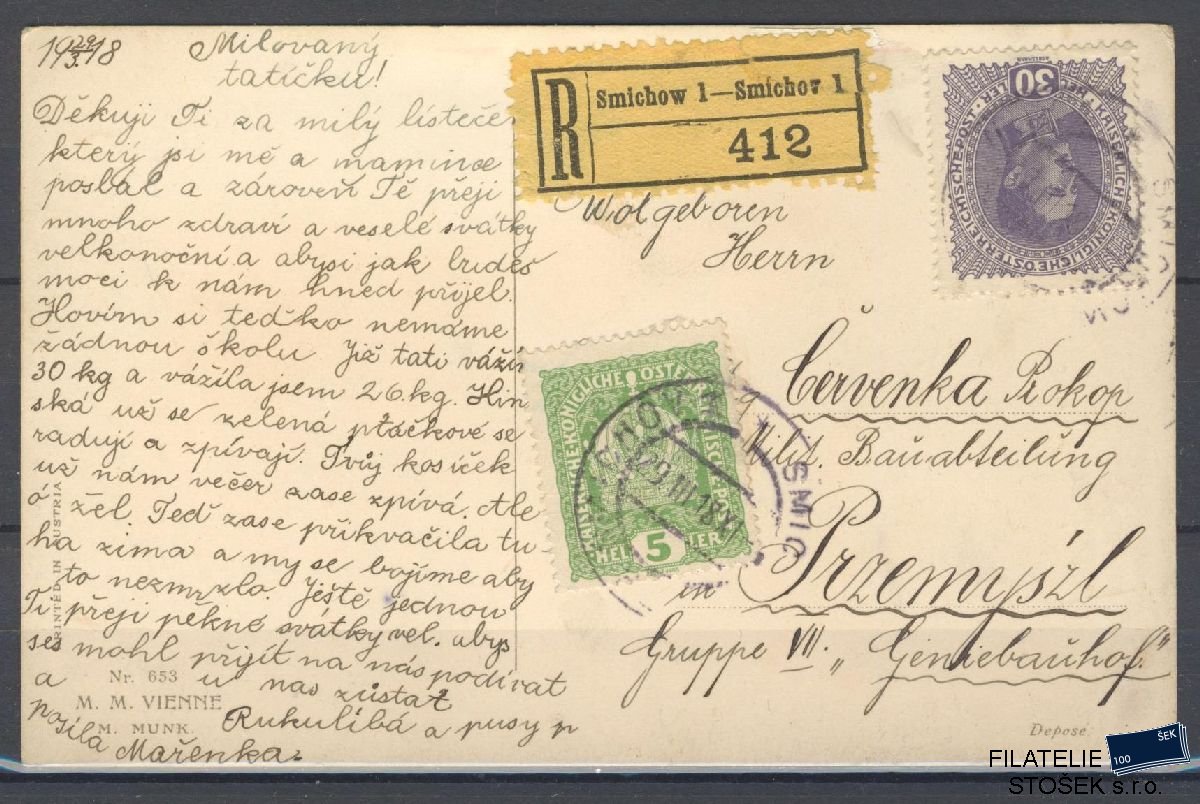 19 29/3. 18 Milovaný
tatíčku!
Děkuji Ti za milý lísteče
který jsi mě a mamince
poslal a zároveň Tě přeji
mnoho zdraví a veselé svátky
velkonoční a abysi jak budeš
moci k nám hned přijel.
Hovím si teďko nemáme
žádnou školu Již tati vážím
30 kg a vážila jsem 26 kg. Kin
ská už se zelená ptáčkové se
radují a zpívají. Tvůj kosíček
už nám večer zase zpívá. Ale
ó žel. Teď zase přikvačila tu-
ha zima a my se bojíme aby
to nezmrzlo. Ještě jednou
Ti přeji pěkné svátky vel. abys
ses mohl přijít na nás podívat
a u nás zůstat
Rukulíbá a pusy p
posílá Mařenka.
PRINTED IN AUSTRIA
Nr. 653
M. M. VIENNE
M. MUNK.
R
Smichow 1—Smíchov 1
412
30
KAISERLICHE KÖNIGLICHE ÖSTERREICHISCHE POST
HELLER
Wolgeboren
Herrn
Červenka Prokop
Milit. Bauabteilung
in Przemyśl
Gruppe VII. „Geniebauhof."
KAISERLICHE KÖNIGLICHE ÖSTERREICHISCHE POST
5
HELLER
29.III.18.XI
SMIC
Deposé.
FILATELIE
STOŠEK s.r.o.
100
ŠEK